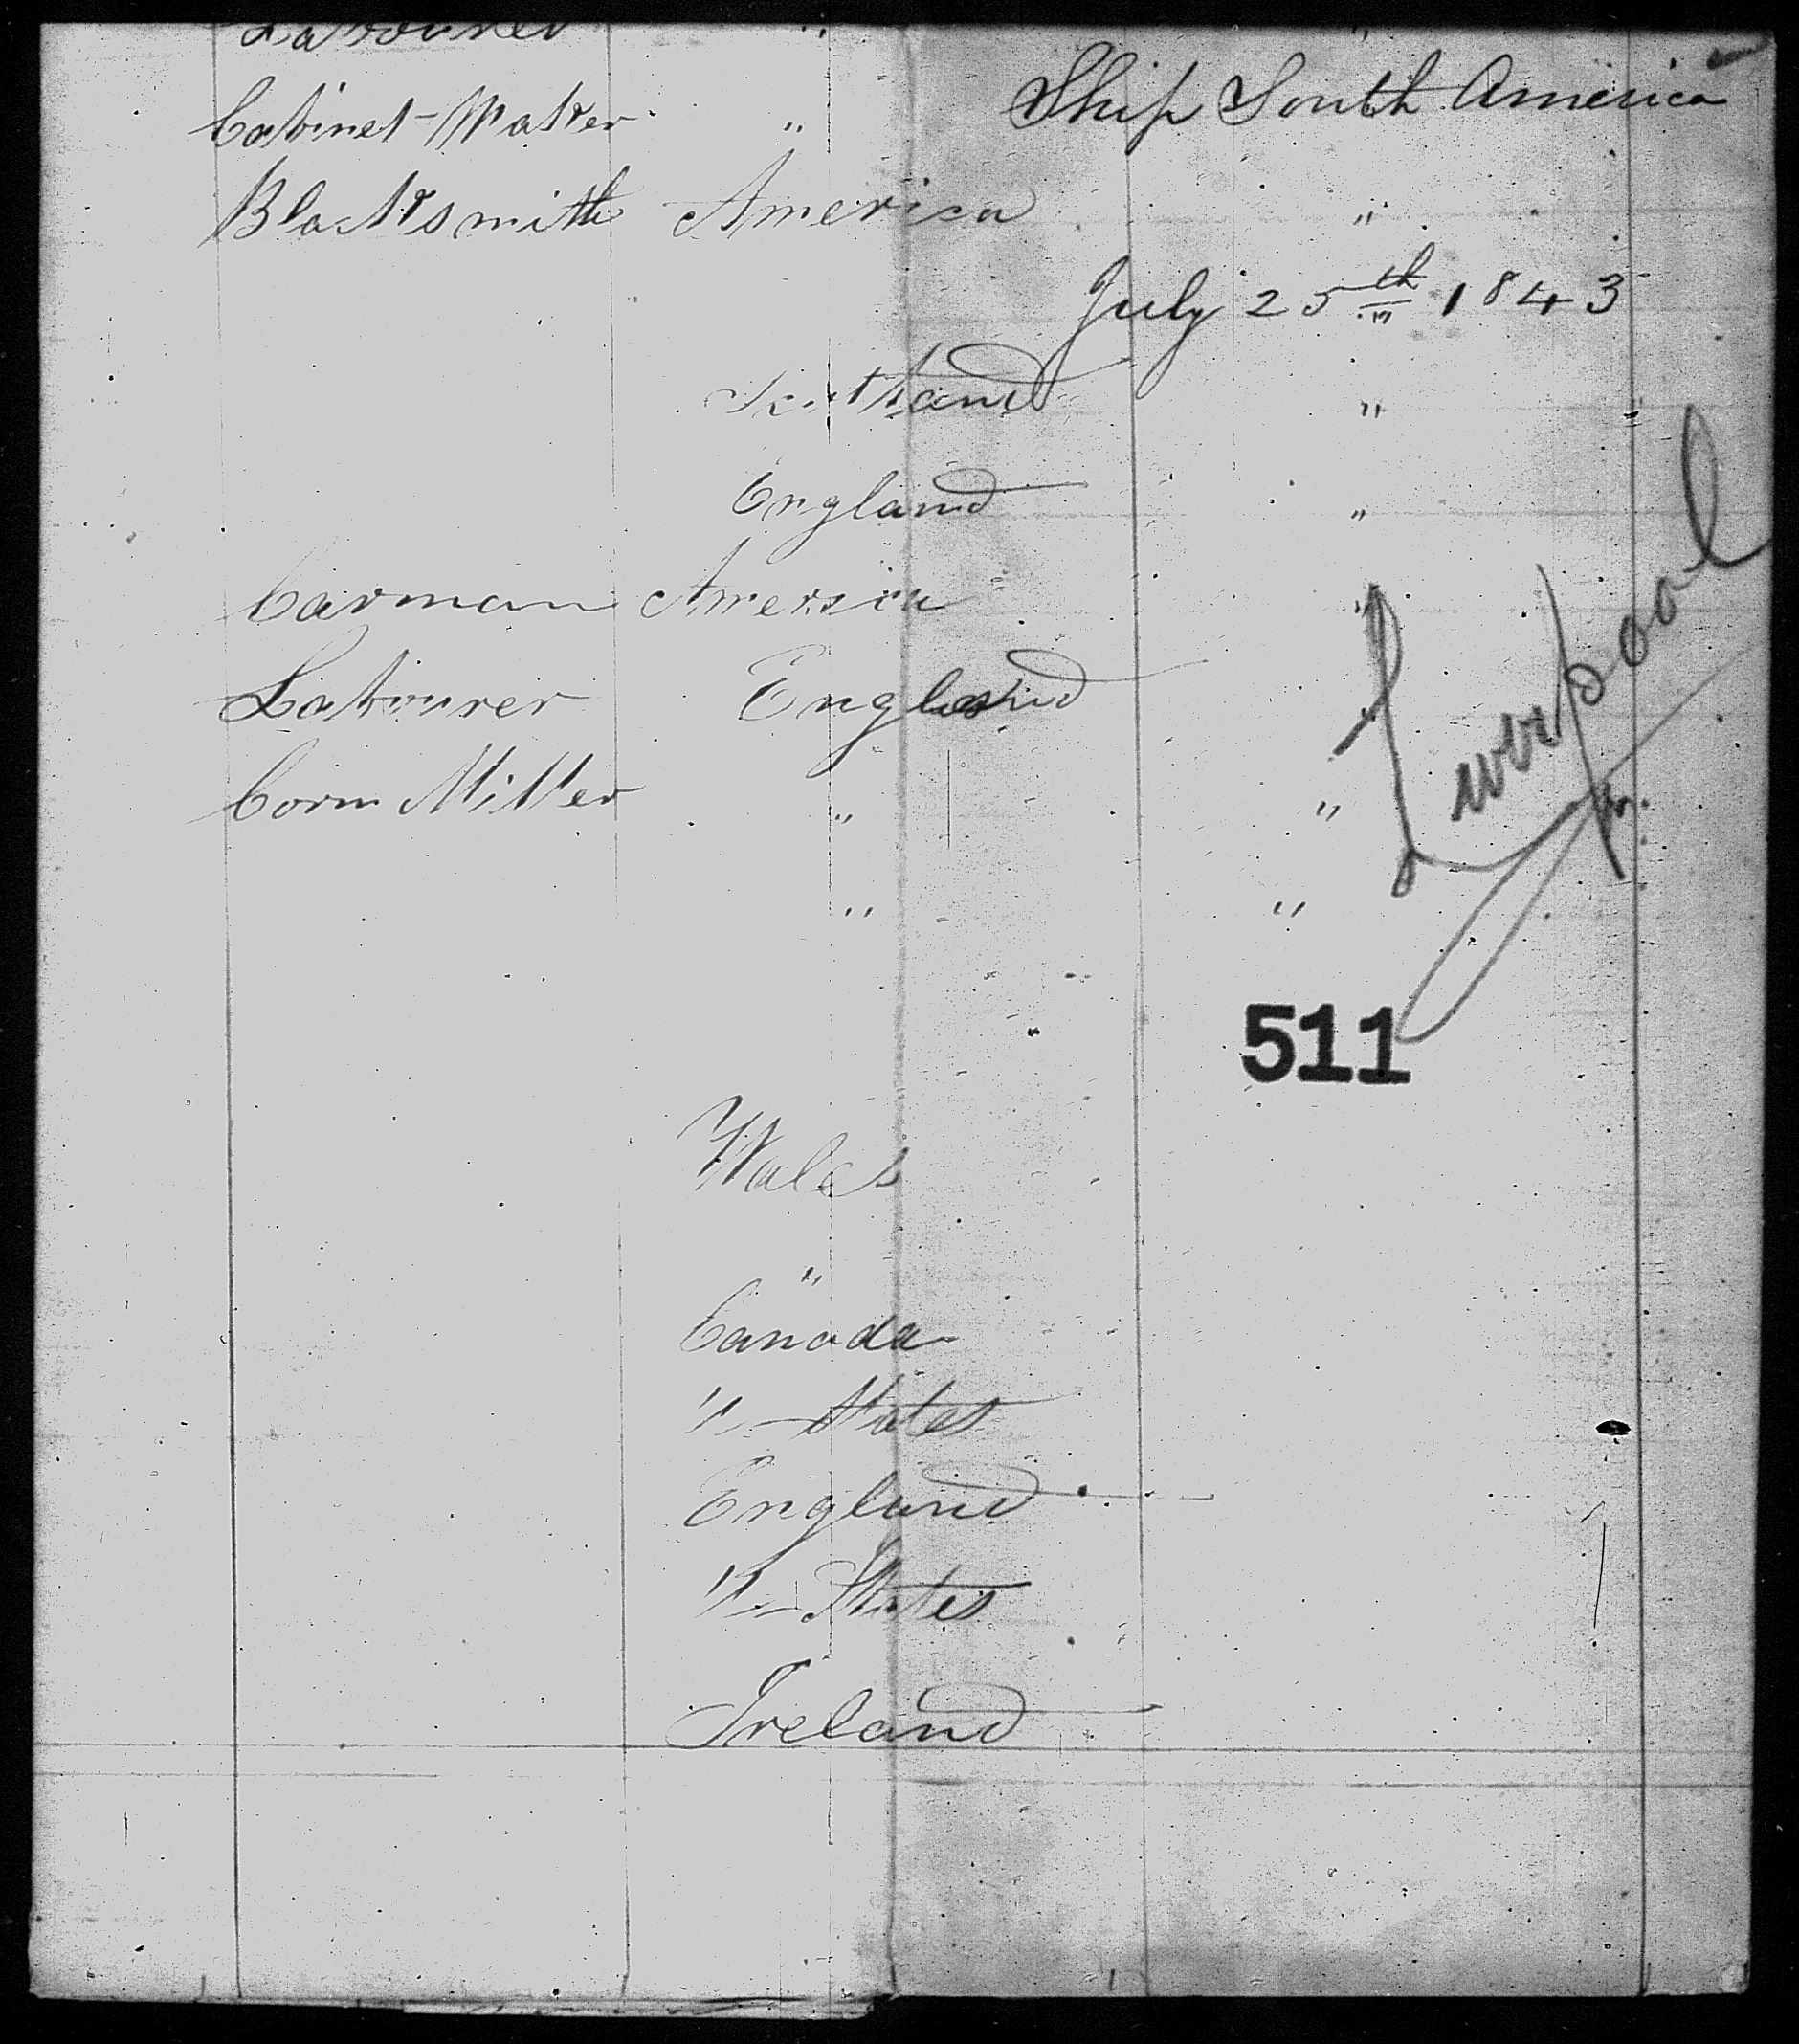 Labourer "
Ship South America
Cabinet-Maker "
Blacksmith America "
July 25th 1843
Scotland "
England "
Carman America "
Labourer England
Liverpool
Corn Miller " "
" "
511
Wales
"
Canada
U-States
England
U-States
Ireland